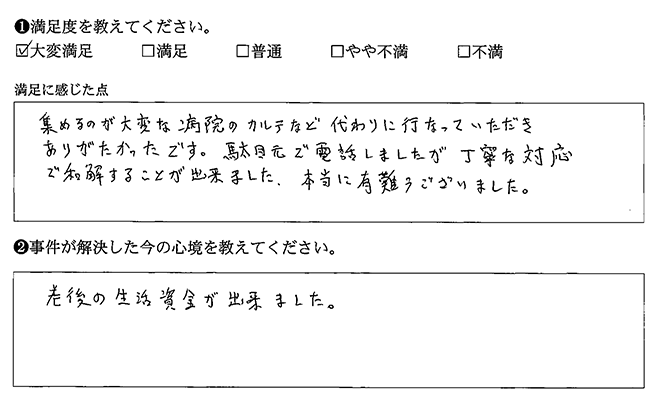 ❶満足度を教えてください。
☑大変満足 □満足 □普通 □やや不満 □不満
満足に感じた点
集めるのが大変な病院のカルテなど代わりに行なっていただき
ありがたかったです。駄目元で電話しましたが丁寧な対応
で和解することが出来ました、本当に有難うございました。
❷事件が解決した今の心境を教えてください。
老後の生活資金が出来ました。